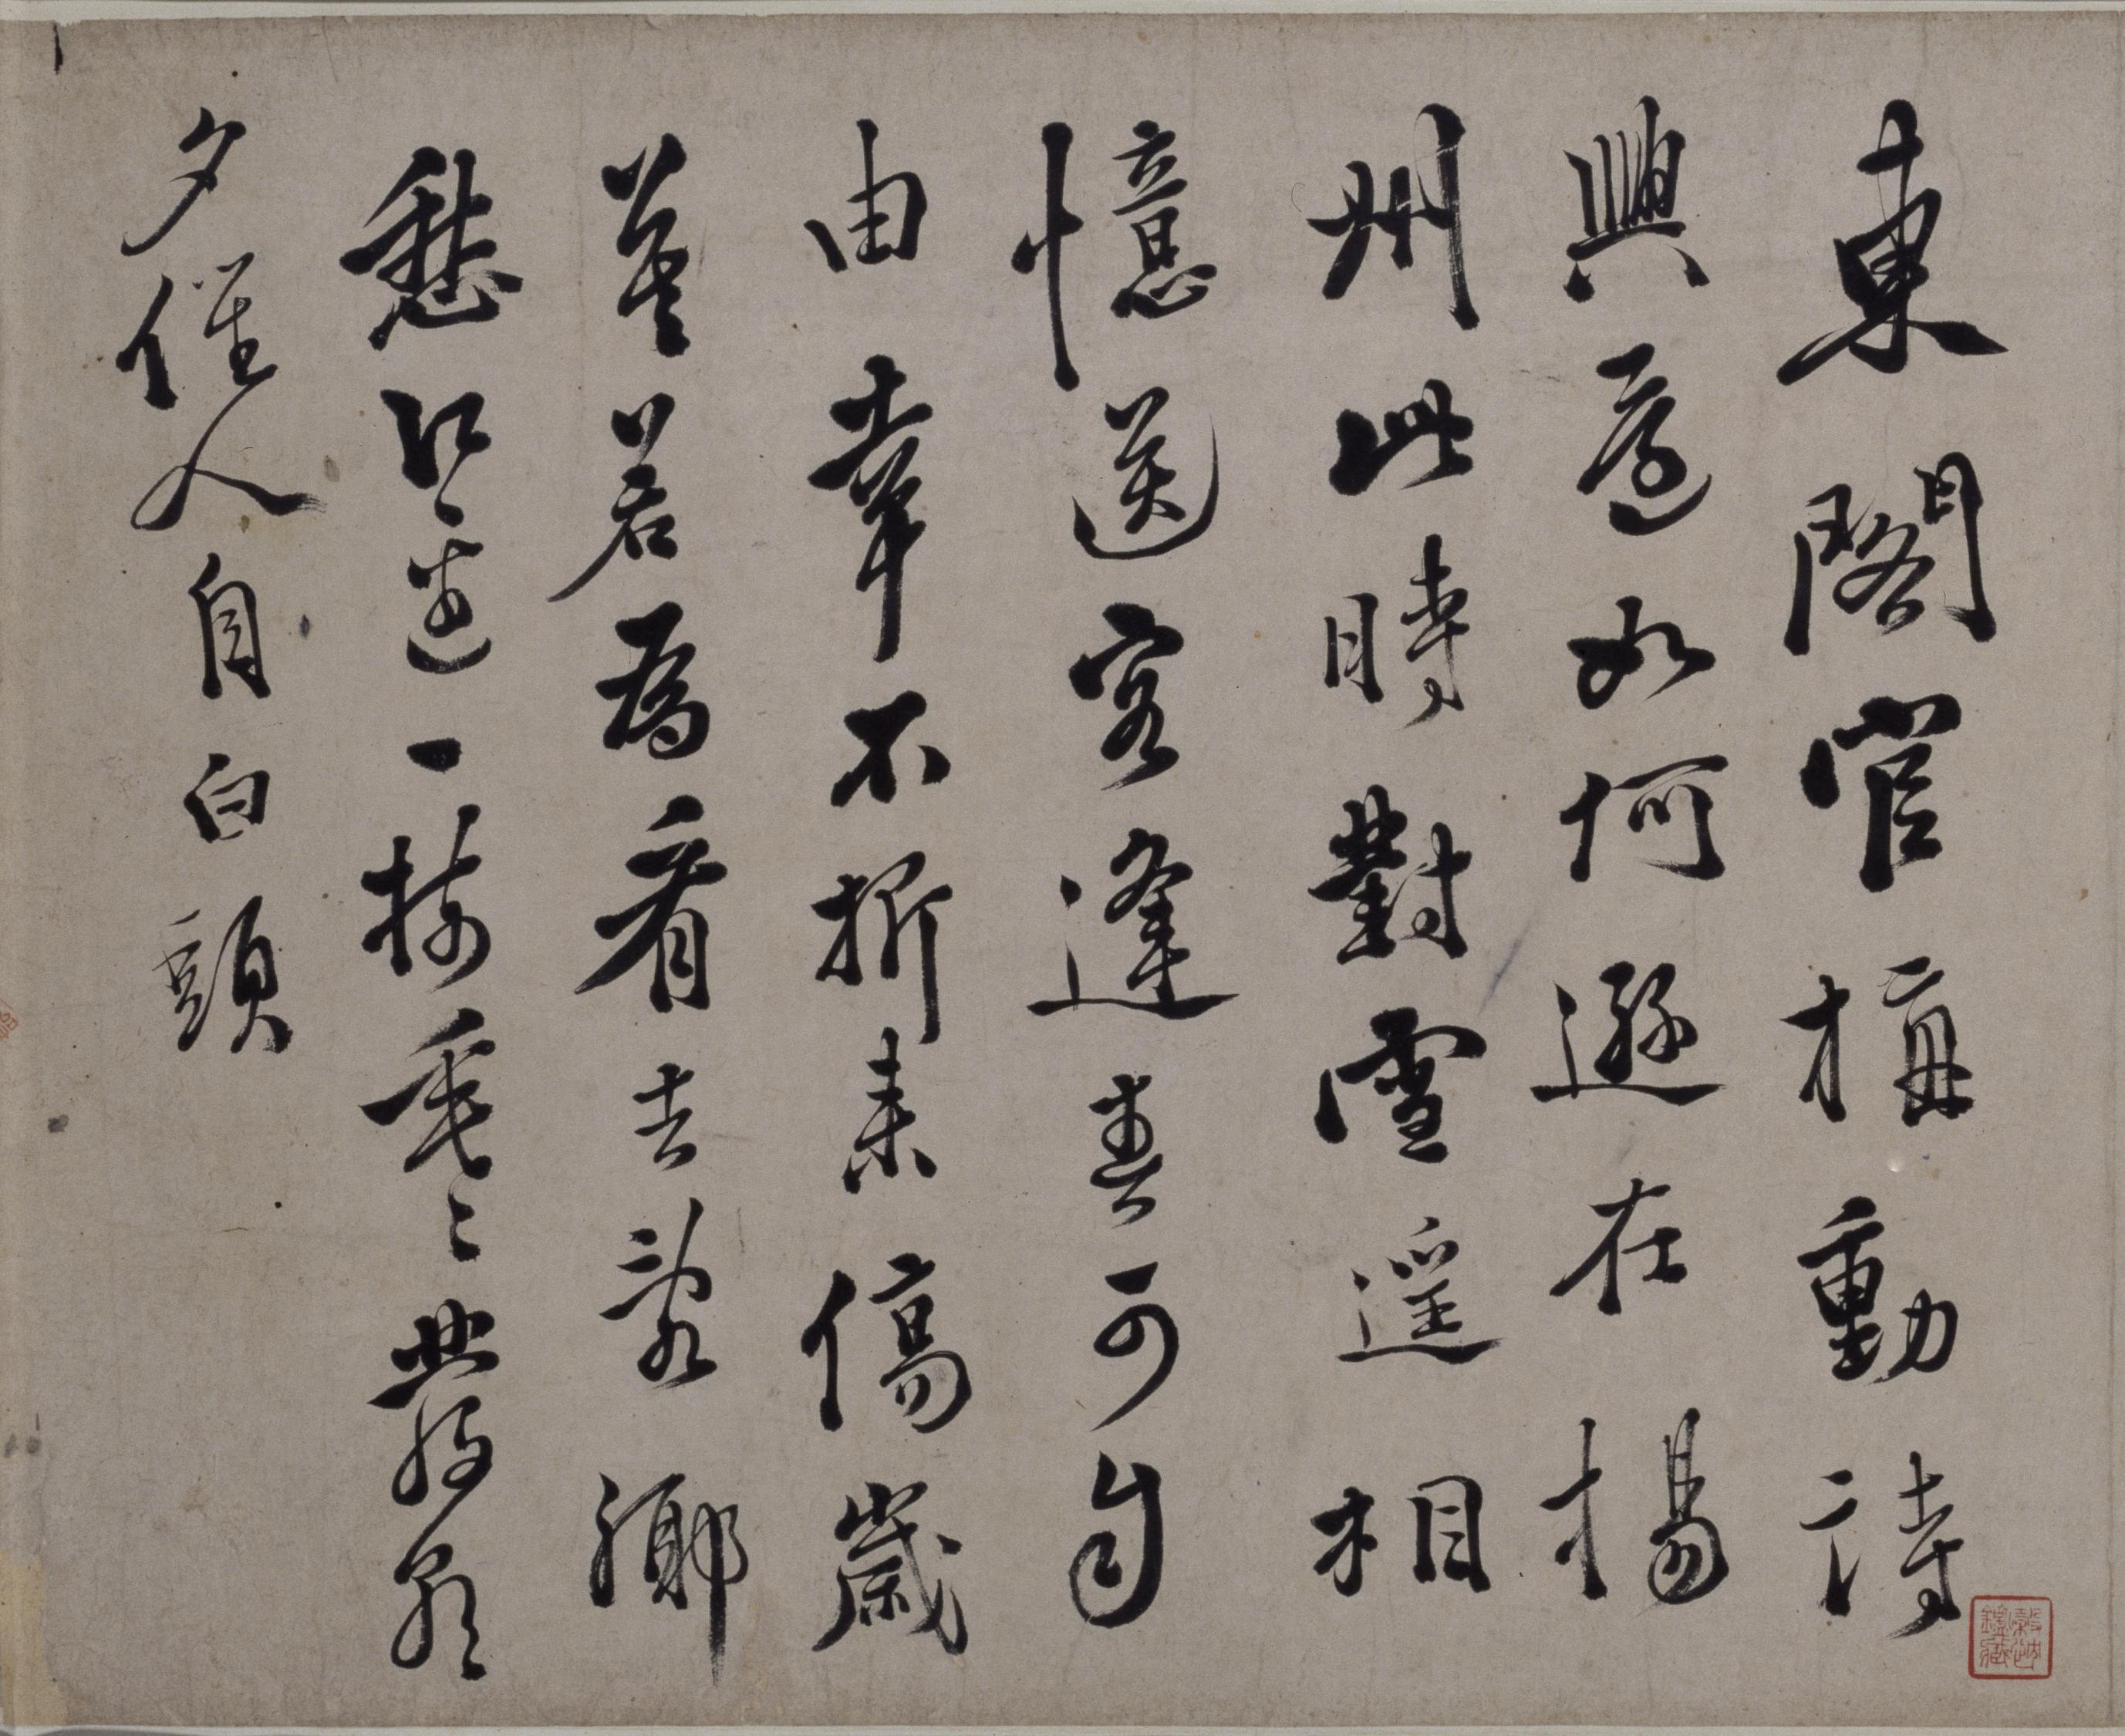 東閣官梅動詩
興還如何遜在揚
州此時對雪遥相
憶送客逢春可自
由幸不折来傷歲
暮若為看去亂鄉
愁江邊一樹垂〻發朝
夕催人自白頭